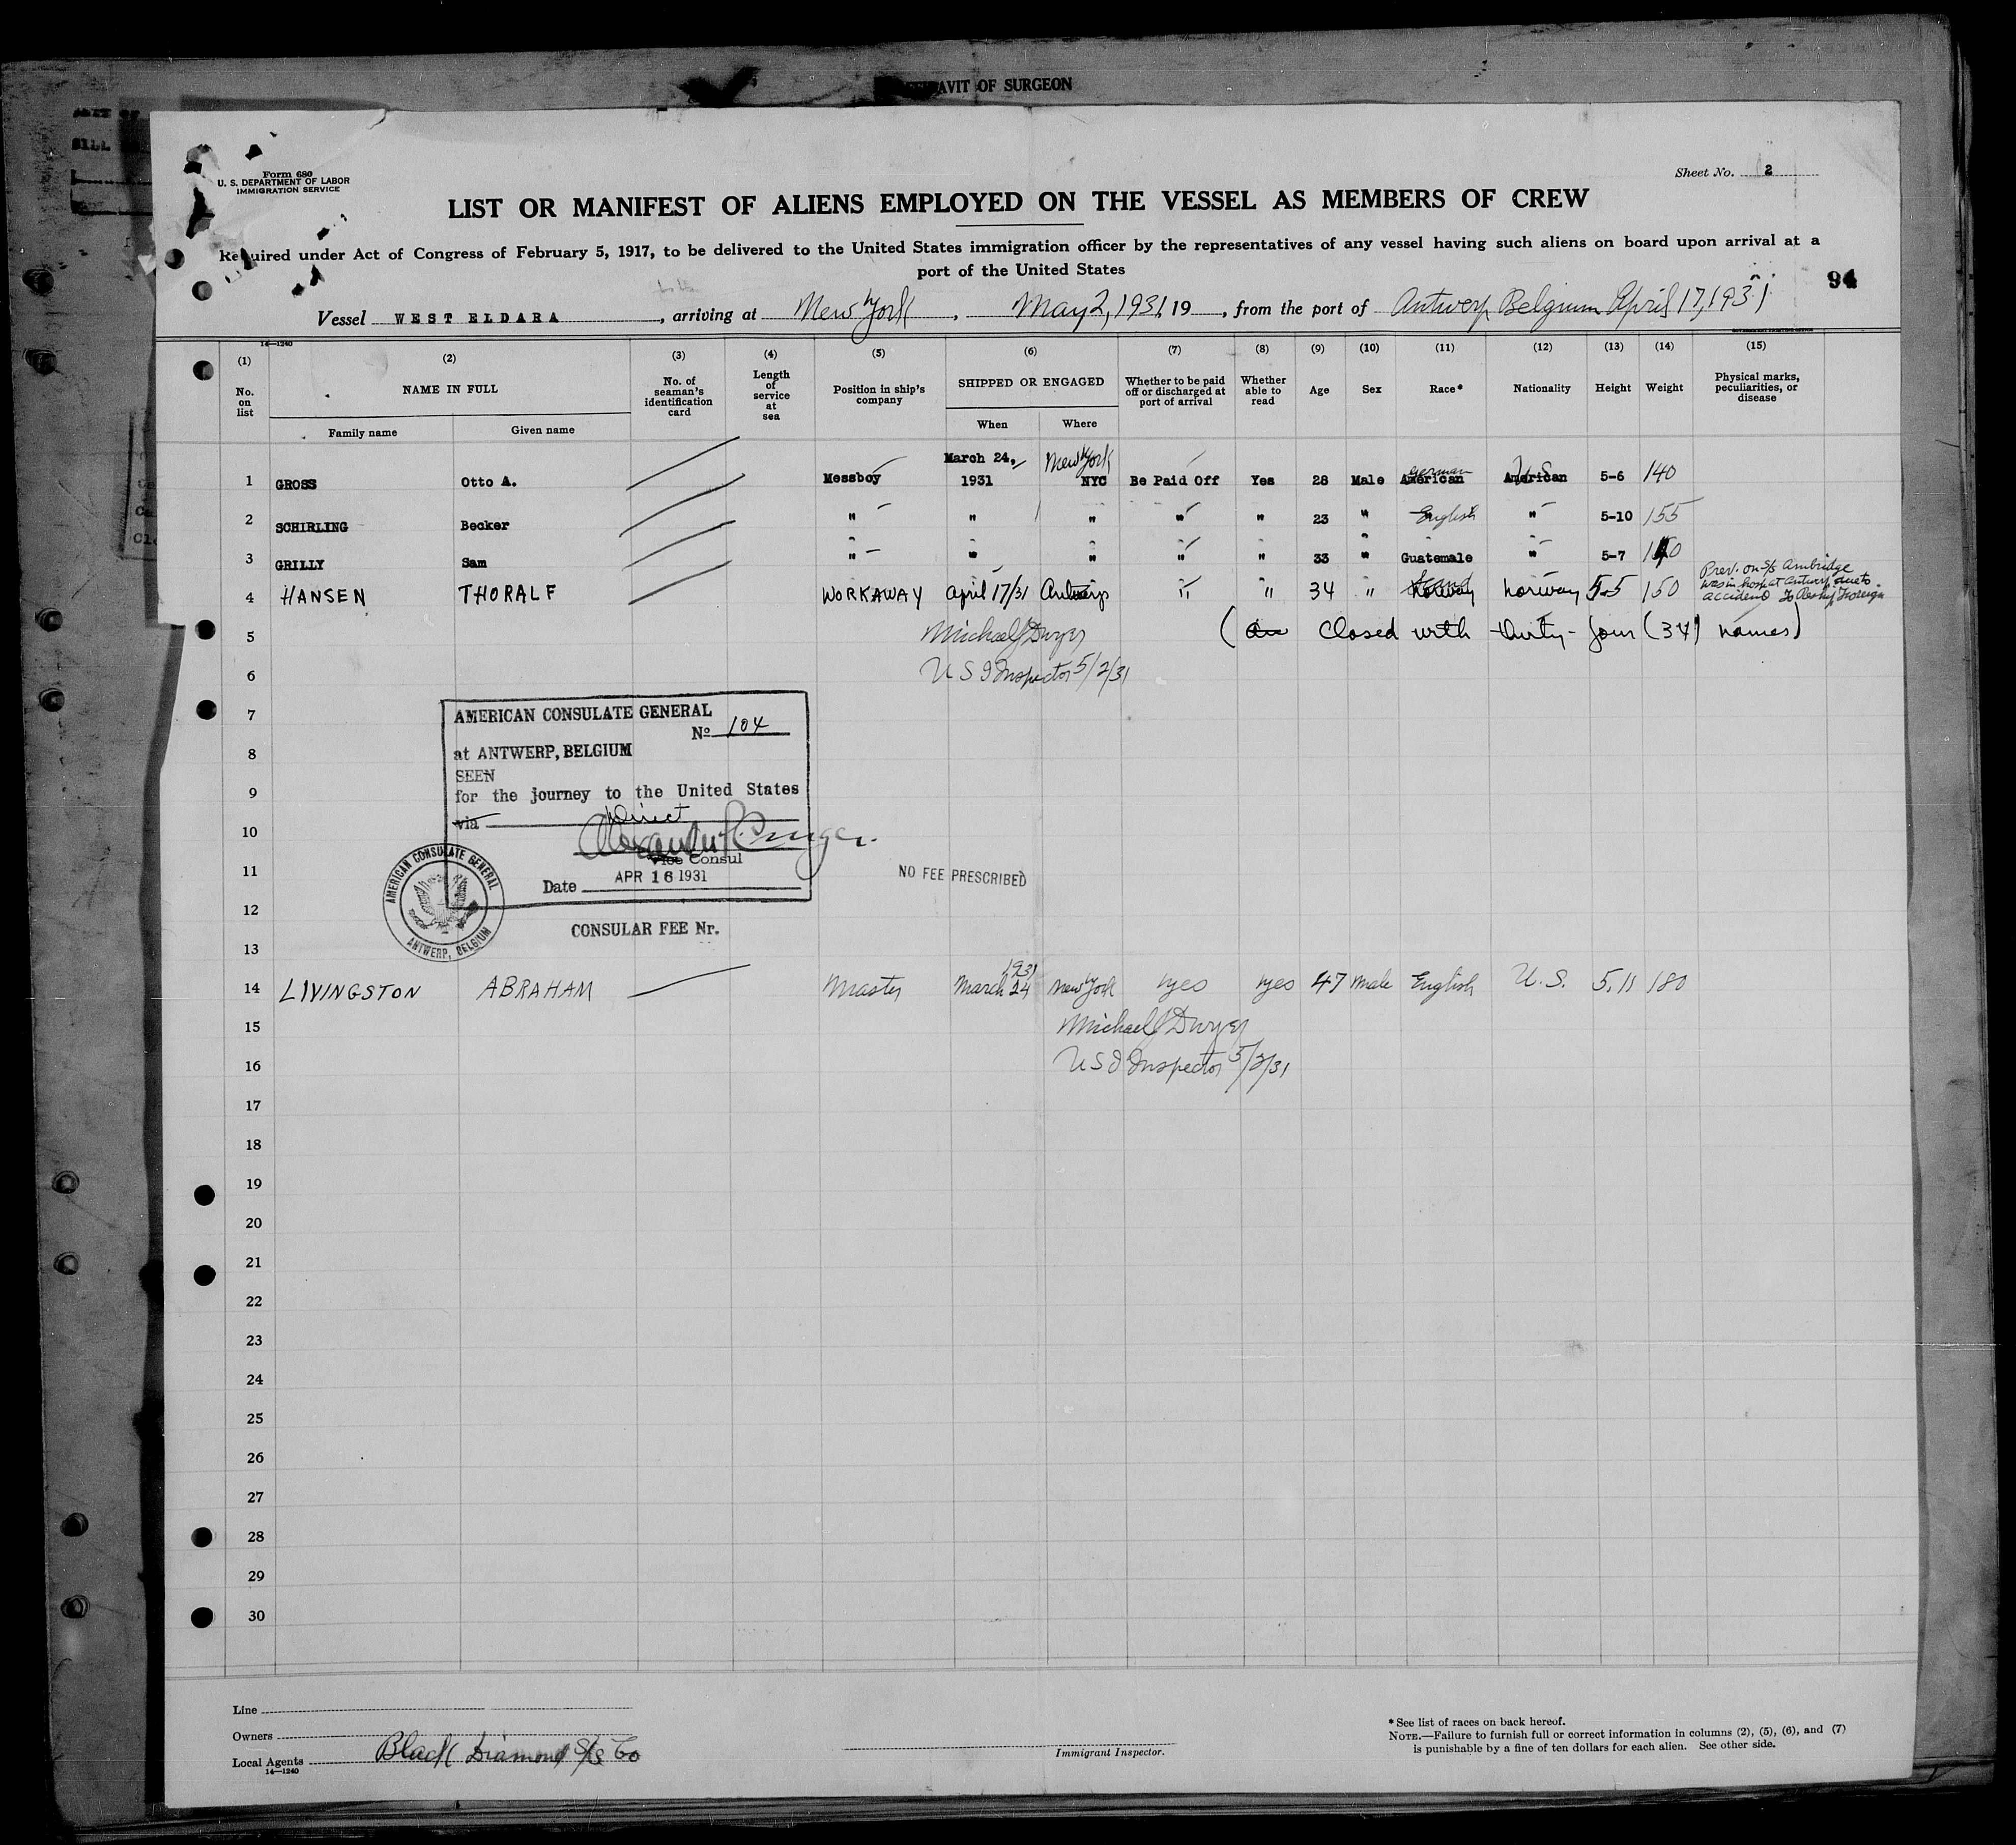 AVIT OF SURGEON
Form 680
U. S. DEPARTMENT OF LABOR
IMMIGRATION SERVICE
Sheet No. 2
LIST OR MANIFEST OF ALIENS EMPLOYED ON THE VESSEL AS MEMBERS OF CREW
Required under Act of Congress of February 5, 1917, to be delivered to the United States immigration officer by the representatives of any vessel having such aliens on board upon arrival at a
port of the United States
94
Vessel WEST ELDARA, arriving at New York, May 2, 1931, 19, from the port of Antwerp Belgium April 17, 1931
14—1240
(1) (2) (3) (4) (5) (6) (7) (8) (9) (10) (11) (12) (13) (14) (15)
No. on list
NAME IN FULL
Family name
Given name
No. of seaman's identification card
Length of service at sea
Position in ship's company
SHIPPED OR ENGAGED
When
Where
Whether to be paid off or discharged at port of arrival
Whether able to read
Age
Sex
Race*
Nationality
Height
Weight
Physical marks, peculiarities, or disease
1 GROSS Otto A. Messboy March 24, 1931 New York NYC Be Paid Off Yes 28 Male German American U.S. American 5-6 140
2 SCHIRLING Becker " " " " " 23 " English " 5-10 155
3 GRILLY Sam " " " " " 33 " Guatemale " 5-7
4 HANSEN THORALF WORKAWAY April 17/31 Antwerp " " 34 " Scand Norway Norway 5-5 150
Prev. on S/S Ambridge
was in hosp at Antwerp due to
accident To Reship Foreign
5 Michael J Dwyer (closed with thirty-four (34) names)
6 U S I Inspector 5/2/31
7
8
9
10
11
12
13
AMERICAN CONSULATE GENERAL
No 104
at ANTWERP, BELGIUM
SEEN
for the journey to the United States
via Direct
Vice Consul
Date APR 16 1931
AMERICAN CONSULATE GENERAL
ANTWERP, BELGIUM
NO FEE PRESCRIBED
CONSULAR FEE Nr.
14 LIVINGSTON ABRAHAM Master March 24 1931 New York yes yes 47 Male English U.S. 5,11 180
15 Michael J Dwyer
16 U S I Inspector 5/2/31
17
18
19
20
21
22
23
24
25
26
27
28
29
30
Line
Owners
Local Agents Black Diamond S/S Co
14—1240
Immigrant Inspector.
*See list of races on back hereof.
NOTE.—Failure to furnish full or correct information in columns (2), (5), (6), and (7)
is punishable by a fine of ten dollars for each alien. See other side.